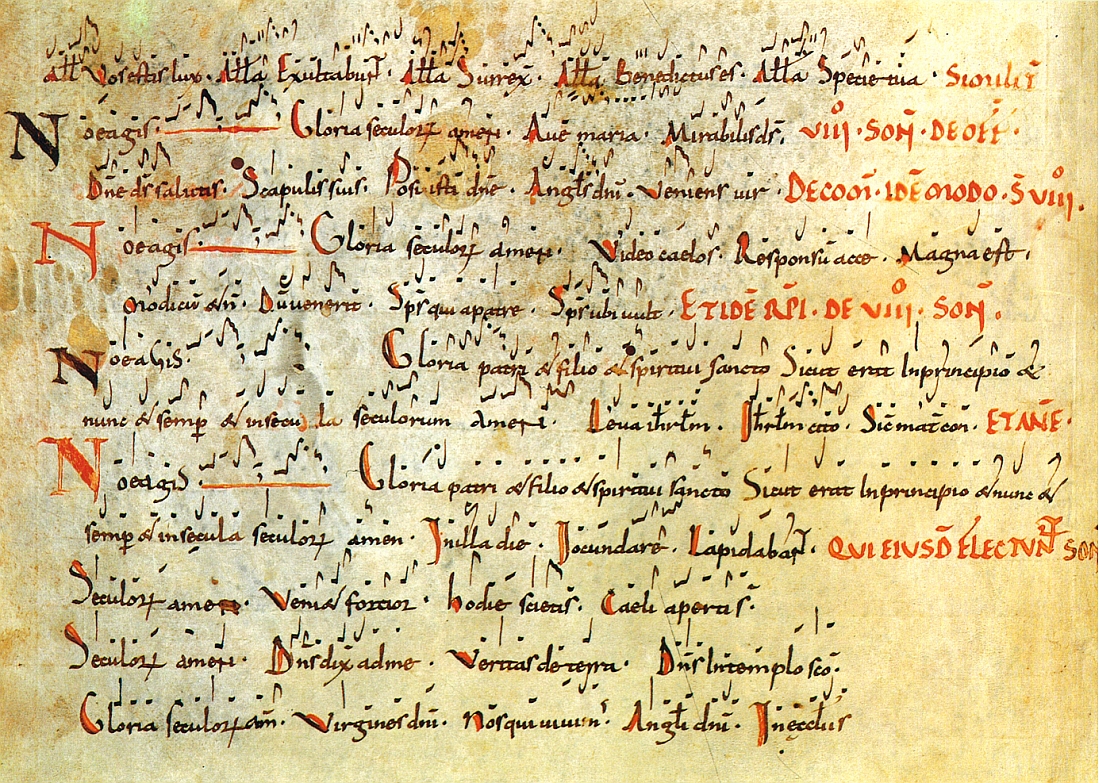 All Vos estis lux · Alla Exultabunt · Alla Surrex̄ · Alla Benedictus es · Alla Specie tua · SIMILIT̄
Noeagis · Gloria seculoꝝ amen · Aue maria · Mirabilis ds̄ · VIII · SOÑ · DE OFF̄ ·
Dn̄e ds̄ salutis · Scapulis suis · Posuisti dn̄e · Angls dn̄i · Veniens uir · DE COM̄ · IDĒ MODO · S̄ VIII ·
Noeagis · Gloria seculoꝝ amen · Video caelos · Responsū acce · Magna est ·
Modicū & n̄ · Dū uenerit · Sps̄ qui a patre · Sps̄ ubi uult · ET IDĒ RPI · DE VIII · SOÑ ·
Noeagis · Gloria patri & filio & spiritui sancto Sicut erat In principio &
nunc & semp̄ & in secula seculorum amen · Leua ihrlm · Ihrlm cito · Sic̄ mat̄ con̄ · ET AÑE ·
Noeagis · Gloria patri & filio & spiritui sancto Sicut erat In principio & nunc &
semp̄ & in secula seculoꝝ amen · In illa die · Iocundare · Lapidabant · QUI EIUSD̄ ELECTUNT SOÑ
Seculoꝝ amen · Veni& fortior · hodie scietis · Caeli apertis ·
Seculoꝝ amen · Dn̄s dix̄ ad me · Veritas de terra · Dn̄s In templo sc̄o ·
Gloria seculoꝝ am̄ · Virgines dn̄i · Nos qui uiuim̄ · Angli dn̄i · In ecclus